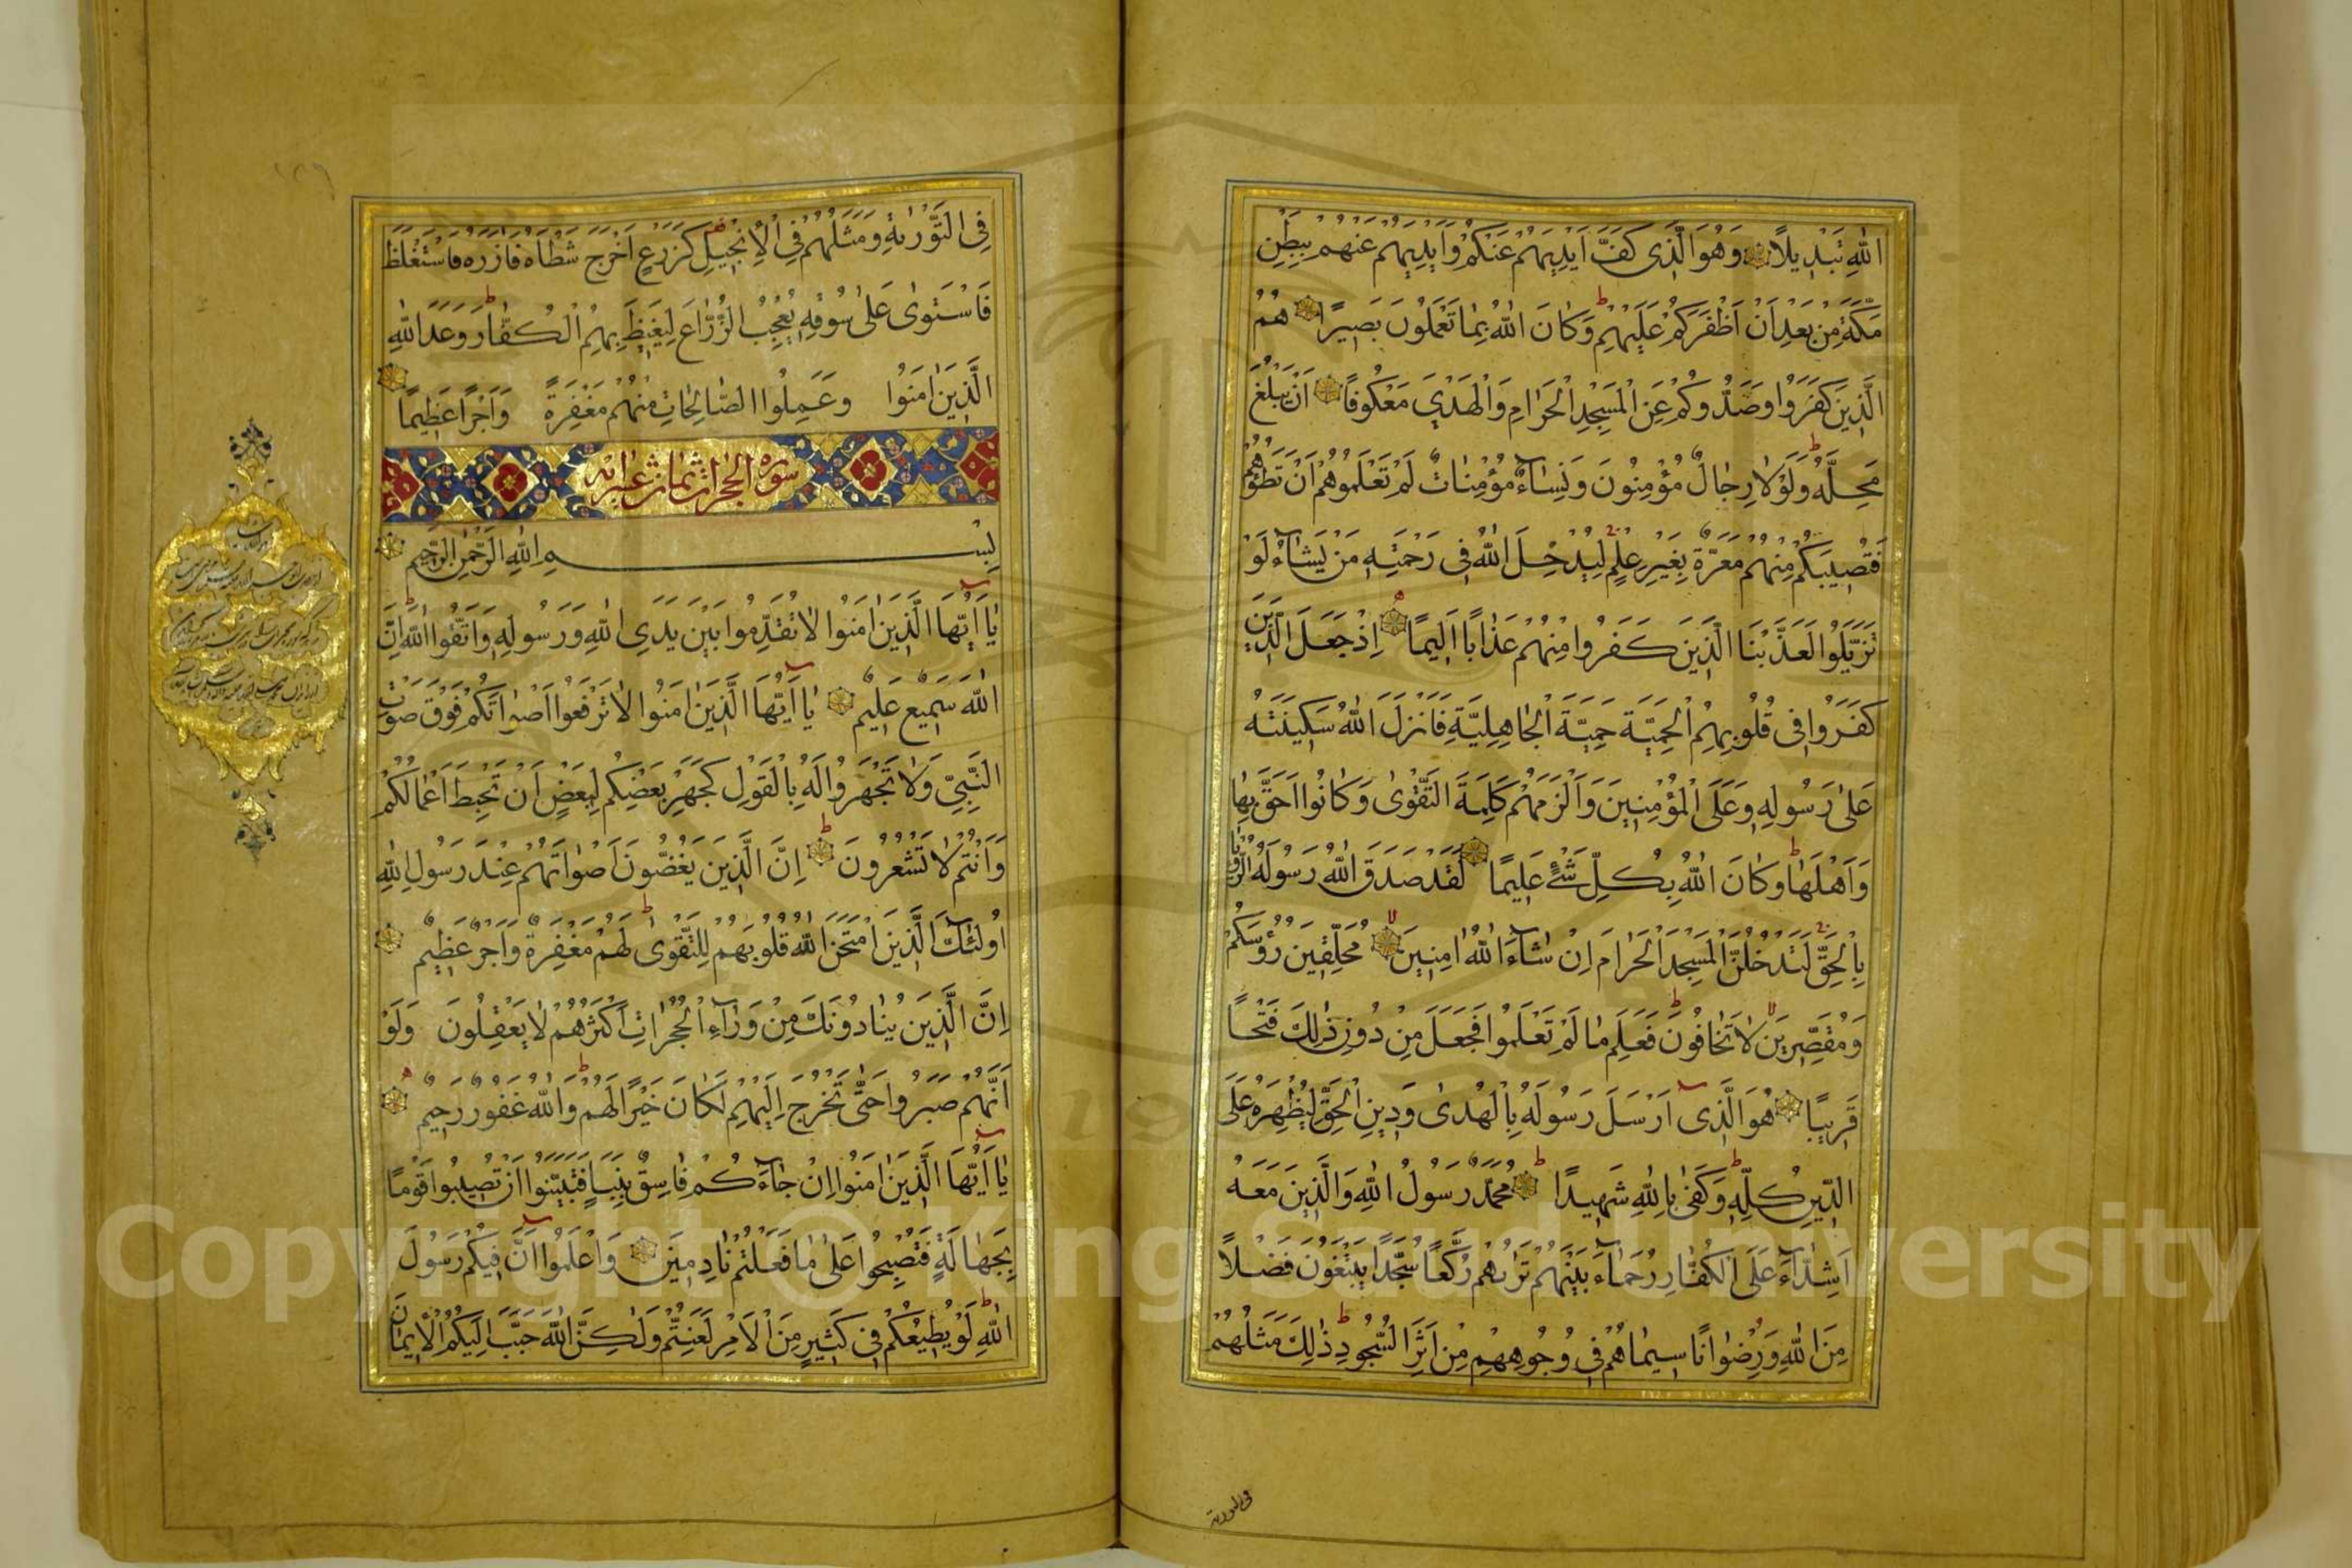 اللهِ تَبْدِيلًا وَهُوَ الَّذِي كَفَّ اَيْدِيَهُمْ عَنْكُمْ وَاَيْدِيَكُمْ عَنْهُمْ بِبَطْنِ
مَكَّةَ مِنْ بَعْدِ اَنْ اَظْفَرَكُمْ عَلَيْهِمْ وَكَانَ اللهُ بِمَا تَعْمَلُونَ بَصِيرًا هُمُ
الَّذِينَ كَفَرُوا وَصَدُّوكُمْ عَنِ الْمَسْجِدِ الْحَرَامِ وَالْهَدْيَ مَعْكُوفًا اَنْ يَبْلُغَ
مَحِلَّهُ وَلَوْلَا رِجَالٌ مُؤْمِنُونَ وَنِسَاءٌ مُؤْمِنَاتٌ لَمْ تَعْلَمُوهُمْ اَنْ تَطَؤُهُمْ
فَتُصِيبَكُمْ مِنْهُمْ مَعَرَّةٌ بِغَيْرِ عِلْمٍ لِيُدْخِلَ اللهُ فِي رَحْمَتِهِ مَنْ يَشَاءُ لَوْ
تَزَيَّلُوا لَعَذَّبْنَا الَّذِينَ كَفَرُوا مِنْهُمْ عَذَابًا اَلِيمًا اِذْ جَعَلَ الَّذِينَ
كَفَرُوا فِي قُلُوبِهِمُ الْحَمِيَّةَ حَمِيَّةَ الْجَاهِلِيَّةِ فَاَنْزَلَ اللهُ سَكِينَتَهُ
عَلَى رَسُولِهِ وَعَلَى الْمُؤْمِنِينَ وَاَلْزَمَهُمْ كَلِمَةَ التَّقْوَى وَكَانُوا اَحَقَّ بِهَا
وَاَهْلَهَا وَكَانَ اللهُ بِكُلِّ شَيْءٍ عَلِيمًا لَقَدْ صَدَقَ اللهُ رَسُولَهُ الرُّؤْيَا
بِالْحَقِّ لَتَدْخُلُنَّ الْمَسْجِدَ الْحَرَامَ اِنْ شَاءَ اللهُ اٰمِنِينَ مُحَلِّقِينَ رُؤُسَكُمْ
وَمُقَصِّرِينَ لَا تَخَافُونَ فَعَلِمَ مَا لَمْ تَعْلَمُوا فَجَعَلَ مِنْ دُونِ ذٰلِكَ فَتْحًا
قَرِيبًا هُوَ الَّذِي اَرْسَلَ رَسُولَهُ بِالْهُدَى وَدِينِ الْحَقِّ لِيُظْهِرَهُ عَلَى
الدِّينِ كُلِّهِ وَكَفَى بِاللهِ شَهِيدًا مُحَمَّدٌ رَسُولُ اللهِ وَالَّذِينَ مَعَهُ
اَشِدَّاءُ عَلَى الْكُفَّارِ رُحَمَاءُ بَيْنَهُمْ تَرٰىهُمْ رُكَّعًا سُجَّدًا يَبْتَغُونَ فَضْلًا
مِنَ اللهِ وَرِضْوَانًا سِيمَاهُمْ فِي وُجُوهِهِمْ مِنْ اَثَرِ السُّجُودِ ذٰلِكَ مَثَلُهُمْ
فی التورية
فِي التَّوْرٰيةِ وَمَثَلُهُمْ فِي الْاِنْجِيلِ كَزَرْعٍ اَخْرَجَ شَطْاَهُ فَاٰزَرَهُ فَاسْتَغْلَظَ
فَاسْتَوَى عَلَى سُوقِهِ يُعْجِبُ الزُّرَّاعَ لِيَغِيظَ بِهِمُ الْكُفَّارَ وَعَدَ اللهُ
الَّذِينَ اٰمَنُوا وَعَمِلُوا الصَّالِحَاتِ مِنْهُمْ مَغْفِرَةً وَاَجْرًا عَظِيمًا
سورة الحجرات ثمان عشر اية
بِسْمِ اللهِ الرَّحْمٰنِ الرَّحِيمِ
يَا اَيُّهَا الَّذِينَ اٰمَنُوا لَا تُقَدِّمُوا بَيْنَ يَدَيِ اللهِ وَرَسُولِهِ وَاتَّقُوا اللهَ اِنَّ
اللهَ سَمِيعٌ عَلِيمٌ يَا اَيُّهَا الَّذِينَ اٰمَنُوا لَا تَرْفَعُوا اَصْوَاتَكُمْ فَوْقَ صَوْتِ
النَّبِيِّ وَلَا تَجْهَرُوا لَهُ بِالْقَوْلِ كَجَهْرِ بَعْضِكُمْ لِبَعْضٍ اَنْ تَحْبَطَ اَعْمَالُكُمْ
وَاَنْتُمْ لَا تَشْعُرُونَ اِنَّ الَّذِينَ يَغُضُّونَ اَصْوَاتَهُمْ عِنْدَ رَسُولِ اللهِ
اُولٰئِكَ الَّذِينَ امْتَحَنَ اللهُ قُلُوبَهُمْ لِلتَّقْوَى لَهُمْ مَغْفِرَةٌ وَاَجْرٌ عَظِيمٌ
اِنَّ الَّذِينَ يُنَادُونَكَ مِنْ وَرَاءِ الْحُجُرَاتِ اَكْثَرُهُمْ لَا يَعْقِلُونَ وَلَوْ
اَنَّهُمْ صَبَرُوا حَتَّى تَخْرُجَ اِلَيْهِمْ لَكَانَ خَيْرًا لَهُمْ وَاللهُ غَفُورٌ رَحِيمٌ
يَا اَيُّهَا الَّذِينَ اٰمَنُوا اِنْ جَاءَكُمْ فَاسِقٌ بِنَبَاٍ فَتَبَيَّنُوا اَنْ تُصِيبُوا قَوْمًا
بِجَهَالَةٍ فَتُصْبِحُوا عَلَى مَا فَعَلْتُمْ نَادِمِينَ وَاعْلَمُوا اَنَّ فِيكُمْ رَسُولَ
اللهِ لَوْ يُطِيعُكُمْ فِي كَثِيرٍ مِنَ الْاَمْرِ لَعَنِتُّمْ وَلٰكِنَّ اللهَ حَبَّبَ اِلَيْكُمُ الْاِيمَانَ
Copyright © King Saud University